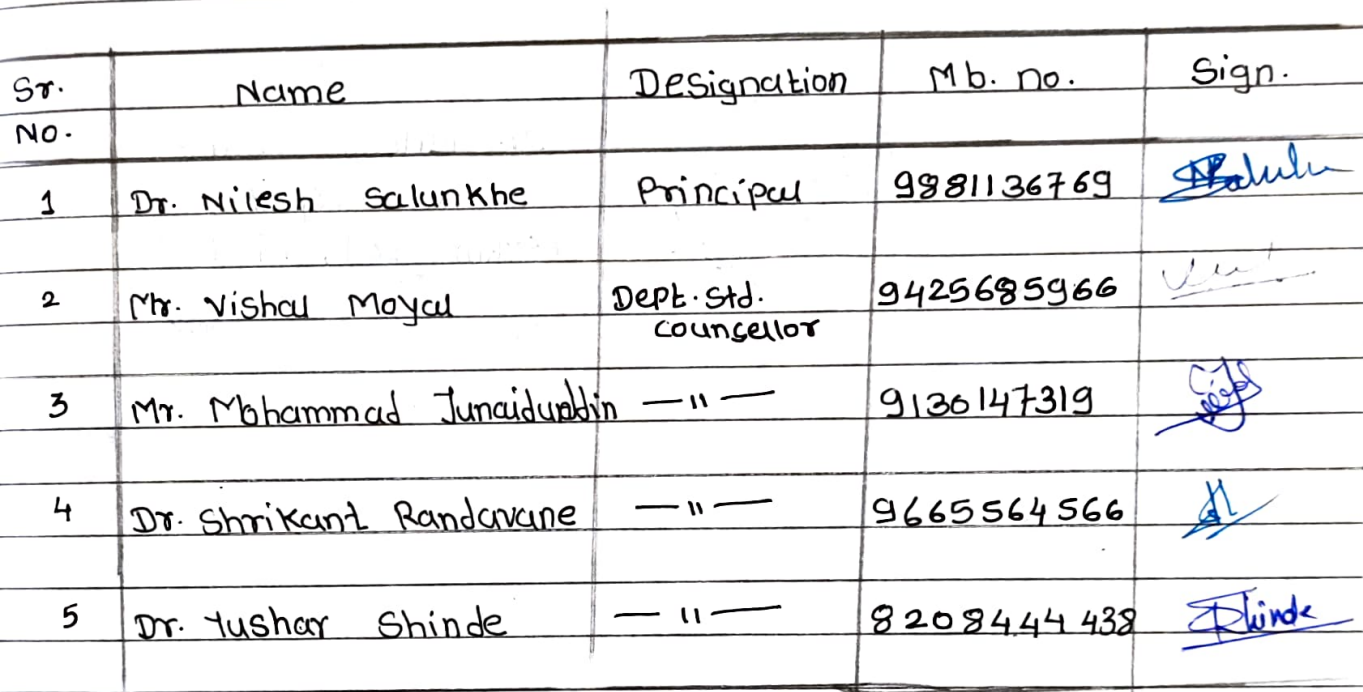 Sr. No. Name Designation Mb. no. Sign.
1 Dr. Nilesh Salunkhe Principal 9881136769
2 Mr. Vishal Moyal Dept. Std. Counsellor 9425685966
3 Mr. Mohammad Junaiduddin —"— 9130147319
4 Dr. Shrikant Randavane —"— 9665564566
5 Dr. Tushar Shinde —"— 8208444438 Shinde